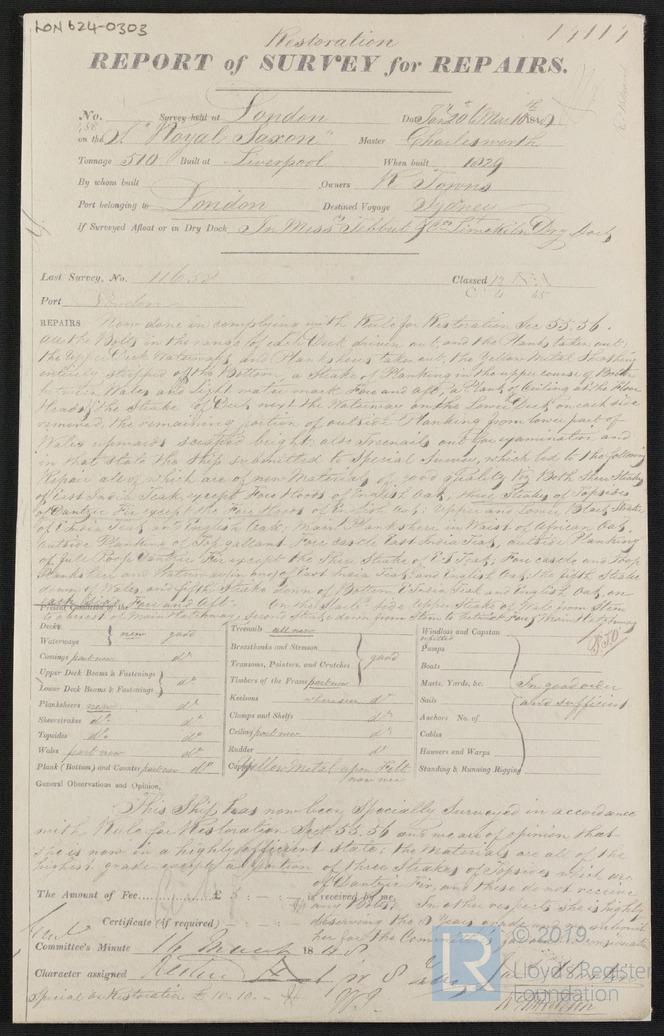 LON 624-0303
Restoration
REPORT of SURVEY for REPAIRS.
No. Survey held at London
on the S. "Royal Saxon" Master Charlesworth
Tonnage 510 Built at Liverpool When built 1829
By whom built Owners R Towns
Port belonging to London Destined Voyage Sydney
If Surveyed Afloat or in Dry Dock In Mess Tebbut Limekiln Dry Dock
Last Survey, No. 11658 Classed 12 A1
Port London
REPAIRS Now done in complying with Rule for Restoration Sec 55.56.
All the Bolts in the range of each Deck driven out, and the Planks taken out;
the Upper Deck Waterways and Planksheers taken out, the Yellow Metal Sheathing
entirely stripped off the Bottom, a Strake of Planking in the upper course of Bottom
between Wales and Light water mark Fore and Aft, a Plank of Ceiling at the Floor
Heads, the Strake of Deck next the Waterway on the Lower Deck on each side
removed, the remaining portion of outside Planking from lower part of
Wales upwards scraped bright also Treenails out for examination and
in that state the Ship submitted to Special Survey, which led to the following
Repair all of which are of new Materials of good quality Viz Both Sheer Strakes
of East India Teak except Fore Hoods of English Oak, three Strakes of Topsides
of Dantzic Fir except the Fore Hoods of English Oak; Upper and Lower Black Strake
of E India Teak and English Oak; Main Planksheer in Waist of African Oak,
Outside Planking of Top gallant Forecastle East India Teak, outside Planking
of full Poop Dantzic Fir except the Sheer Strake of E I Teak; Forecastle and Poop
Planksheer and Waterways in one of East India Teak and English Oak, the fifth Strake
down of Wales, and fifth Strake down of Bottom E India Teak and English Oak, on
each side Fore and Aft. On the Starbd side Upper Strake of Wale from Stem
to abreast of Main Hatchway, Second Strake down from Stem to between Fore & Main Hatchway
PTO
Present Condition of the
Decks new good
Waterways
Comings part new do
Upper Deck Beams & Fastenings
Lower Deck Beams & Fastenings do
Planksheers new do
Sheerstrakes do do
Topsides do do
Wales part new do
Plank (Bottom) and Counter part new do
Treenails all new
Breasthooks and Stemson
Transoms, Pointers, and Crutches good
Timbers of the Frame part new
Keelsons where seen do
Clamps and Shelfs do
Ceiling part new do
Rudder do
Yellow Metal upon Felt
now new
Windlass and Capstan refitted
Pumps
Boats
Masts, Yards, &c. In good order
Sails and sufficient
Anchors No. of
Cables
Hawsers and Warps
Standing & Running Rigging
General Observations and Opinion,
This Ship has now been Specially Surveyed in accordance
with Rule for Restoration Sect 55.56 and we are of opinion that
she is now in a highly efficient state; the Materials are all of the
highest grade except a portion of three Strakes of Topsides which are
of Dantzic Fir, and these do not receive
any Bolts. In other respects she is highly
deserving the 8 Years grade
her for the Committee's
The Amount of Fee £ 5 : - : - is received by me,
Certificate (if required) - : - : -
Committee's Minute 16 March 1848
Character assigned
Special on Restoration £ 10.10.-
© 2019
Lloyd's Register
Foundation